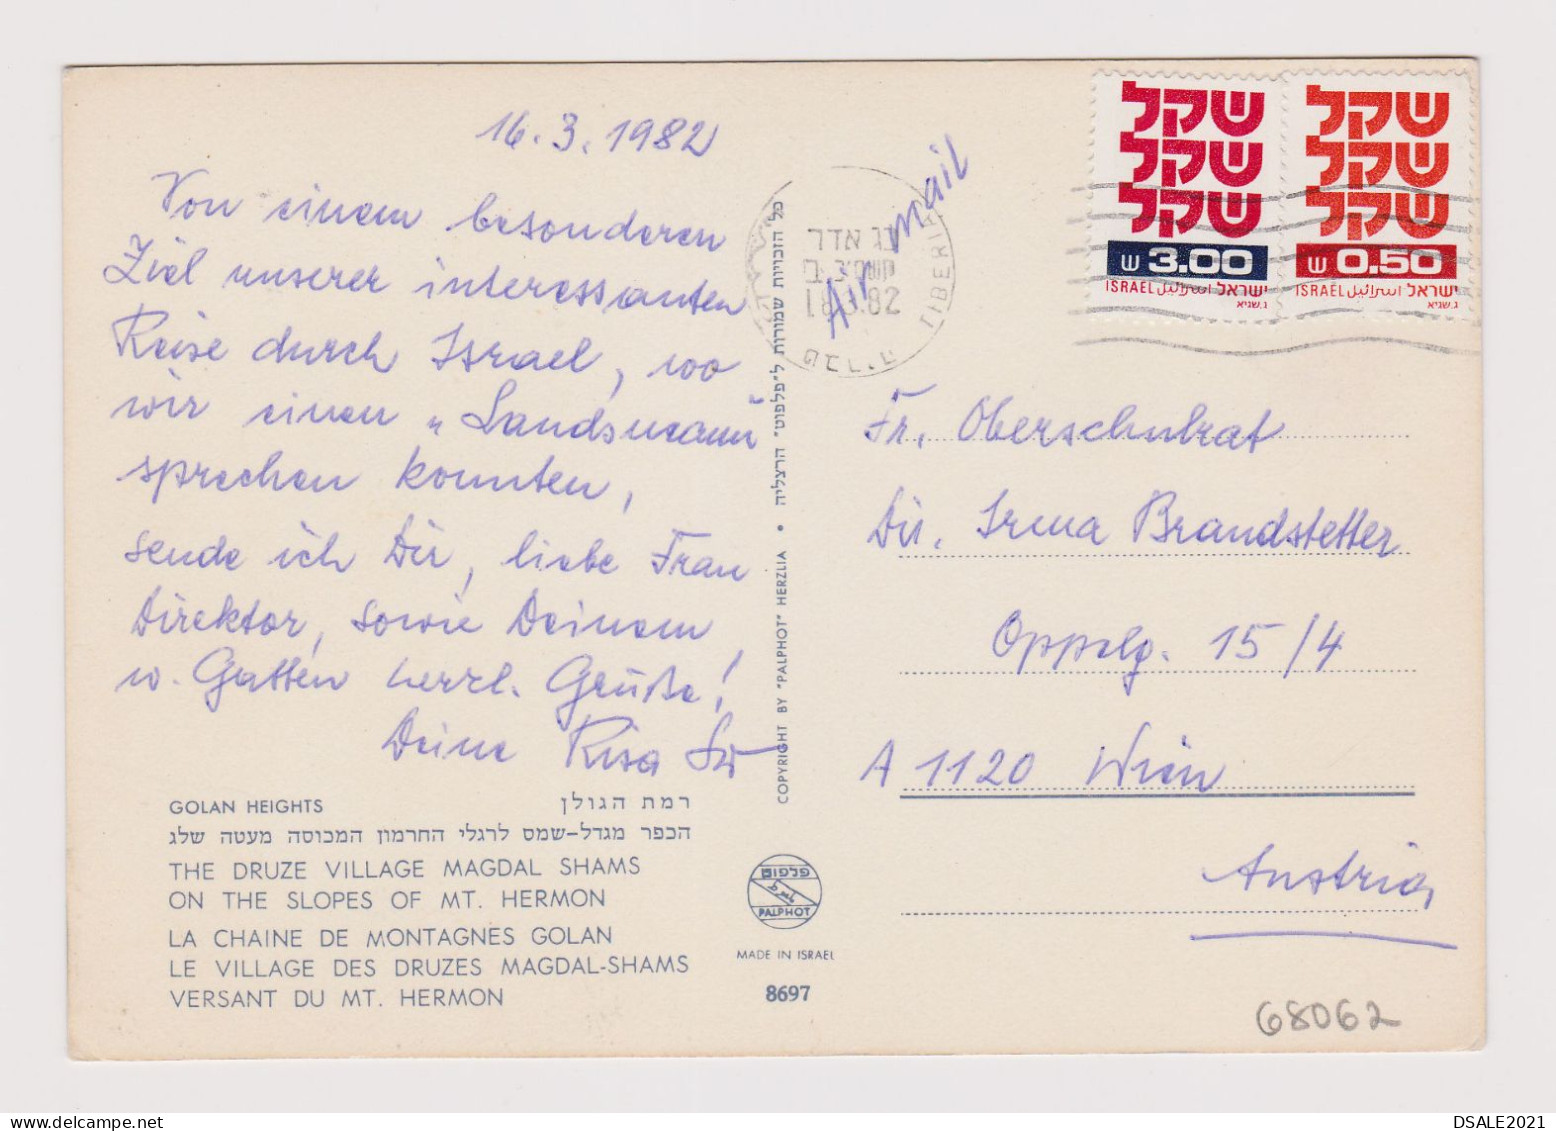 16.3.1982
Von einem besonderen
Ziel unserer interessanten
Reise durch Israel, wo
wir einen „Landsmann"
sprechen konnten,
sende ich Dir, liebe Frau
Direktor, sowie Deinem
w. Gatten herzl. Grüße!
Deine Risa
GOLAN HEIGHTS רמת הגולן
הכפר מגדל-שמס לרגלי החרמון המכוסה מעטה שלג
THE DRUZE VILLAGE MAGDAL SHAMS
ON THE SLOPES OF MT. HERMON
LA CHAINE DE MONTAGNES GOLAN
LE VILLAGE DES DRUZES MAGDAL-SHAMS
VERSANT DU MT. HERMON
כל הזכויות שמורות ל"פלפוט" הרצליה • COPYRIGHT BY "PALPHOT" HERZLIA
פלפוט
PALPHOT
MADE IN ISRAEL
8697
Air mail
כג אדר
18.3.82
טבריה
TIBERIAS
שקל
שקל
שקל
ש 3.00
ISRAEL اسرائيل ישראל
ג.שגיא
שקל
שקל
שקל
ש 0.50
ISRAEL اسرائيل ישראל
ג.שגיא
Fr. Oberschulrat
Dir. Irma Brandstetter
Oppelg. 15/4
A 1120 Wien
Austria
68062
DSALE2021